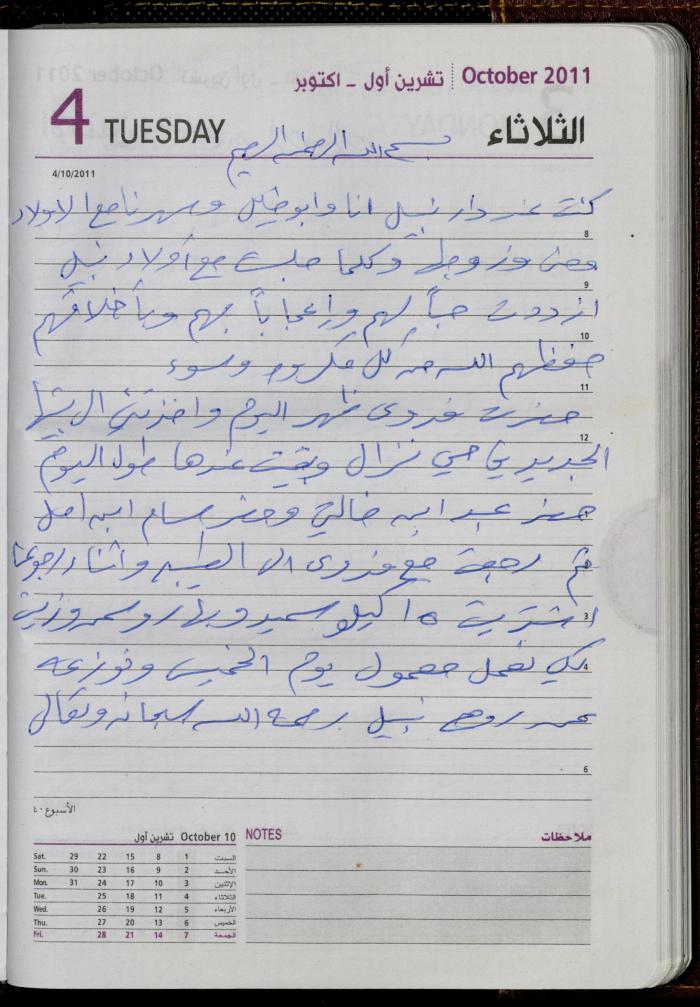 October 2011 تشرين أول ـ اكتوبر
4 TUESDAY الثلاثاء
بسم الله الرحمن الرحيم
4/10/2011
كنت عند دار نبيل انا وابو خليل وسهرنا مع الاولاد
8
وكلما جلست مع أولاد نبيل
9
ازددت حباً لهم وإعجاباً بهم وبأخلاقهم
10
حفظهم الله من كل مكروه وسوء
11
حضرت فدوى ظهر اليوم واخذتني الى بيتها
12
الجديد في حي نزال وبقيت عندها طول اليوم
حضر عبد ابن خالتي وحضر بسام ابن امل
ثم رجعت مع فدوى الى الطيبه واثناء رجوعنا
3
اشتريت ١٥ كيلو سميد وبهار وسمن وزيت
4
لكي نعمل معمول يوم الخميس ونوزعه
عن روح نبيل رحمة الله سبحانه وتعالى
6
الأسبوع ٤٠
October 10 تشرين أول
Sat. 29 22 15 8 1 السبت
Sun. 30 23 16 9 2 الأحد
Mon. 31 24 17 10 3 الإثنين
Tue. 25 18 11 4 الثلاثاء
Wed. 26 19 12 5 الأربعاء
Thu. 27 20 13 6 الخميس
Fri. 28 21 14 7 الجمعة
NOTES ملاحظات